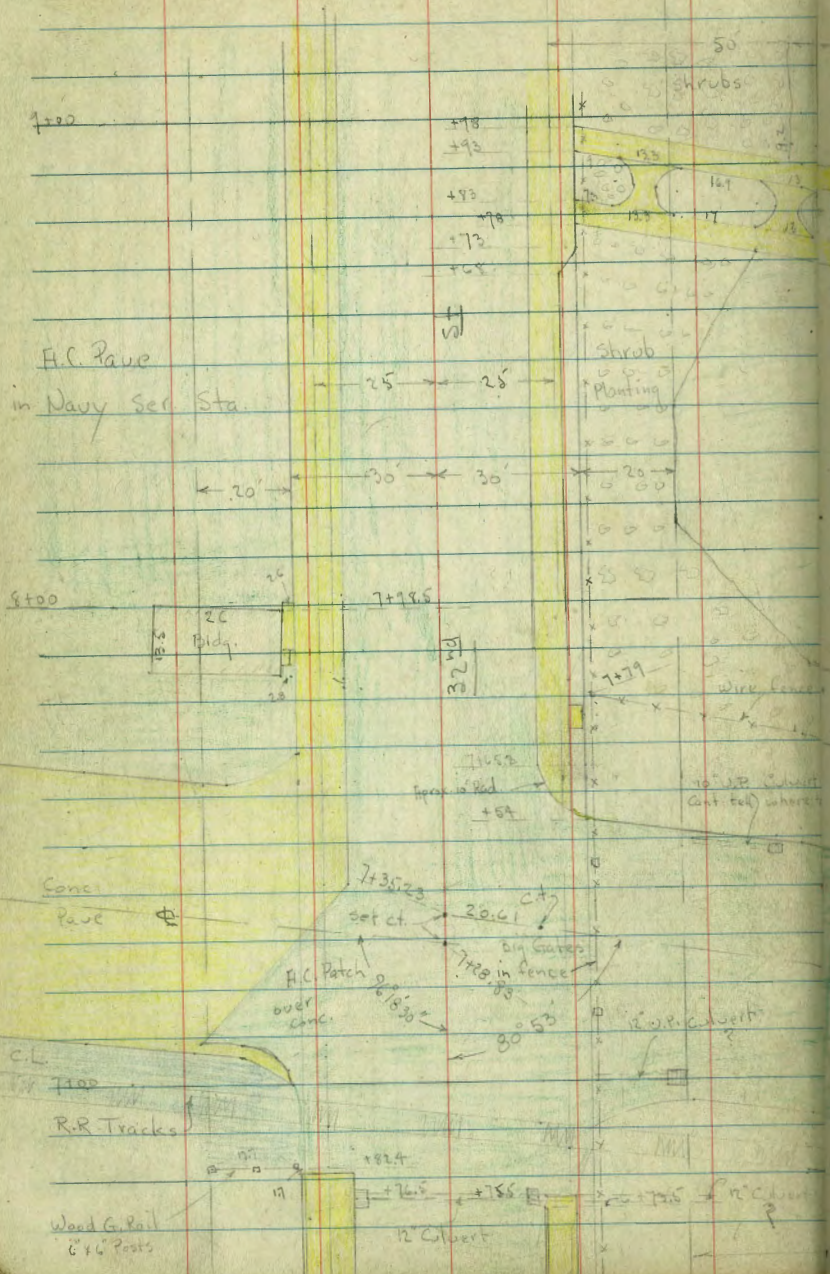 50'
Shrubs
9+00
+98
+93
13.5
+83
16.9
13
+78
13.5
17
13
+73
+68
St
A.C. Pave
in Navy Ser. Sta.
25
25
Shrub
Planting
20'
30'
30'
20
8+00
26
2C
Bldg.
13.5
28
7+98.5
32nd
7+79
Wire fence
7+65.8
Aprox 10' Rad
+54
10" V.P. Culvert
Cant tell where
Conc.
Pave
7+35.23
Set ct.
20.61
C.t.
Big Gates
in fence
7+28.83
A.C. Patch
over
conc.
80° 53'
12" V.P. Culvert
?
C.L.
7+00
R.R. Tracks
+82.4
17
+76.5
+75.5
+75.5
12" Culvert
?
12" Culvert
Wood G. Rail
6" x 6" Posts